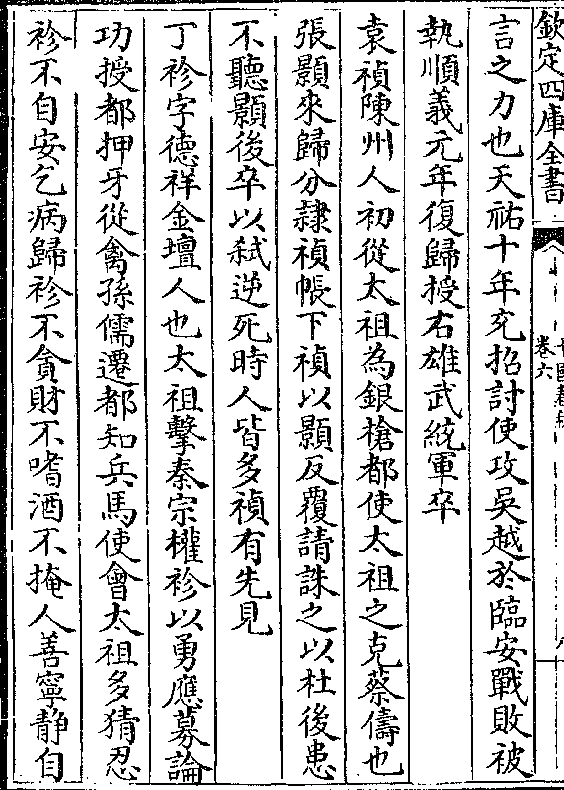 欽定四庫全書
卷六
言之力也天祐十年充招討使攻吳越於臨安戰敗被
執順義元年復歸授右雄武統軍卒
袁禎陳州人初從太祖為銀槍都使太祖之克蔡儔也
張顥來歸分隸禎帳下禎以顥反覆請誅之以杜後患
不聽顥後卒以弑逆死時人皆多禎有先見
丁袗字德祥金壇人也太祖擊秦宗權袗以勇應募論
功授都押牙從禽孫儒遷都知兵馬使會太祖多猜忍
袗不自安乞病歸袗不貪財不嗜酒不掩人善寧靜自